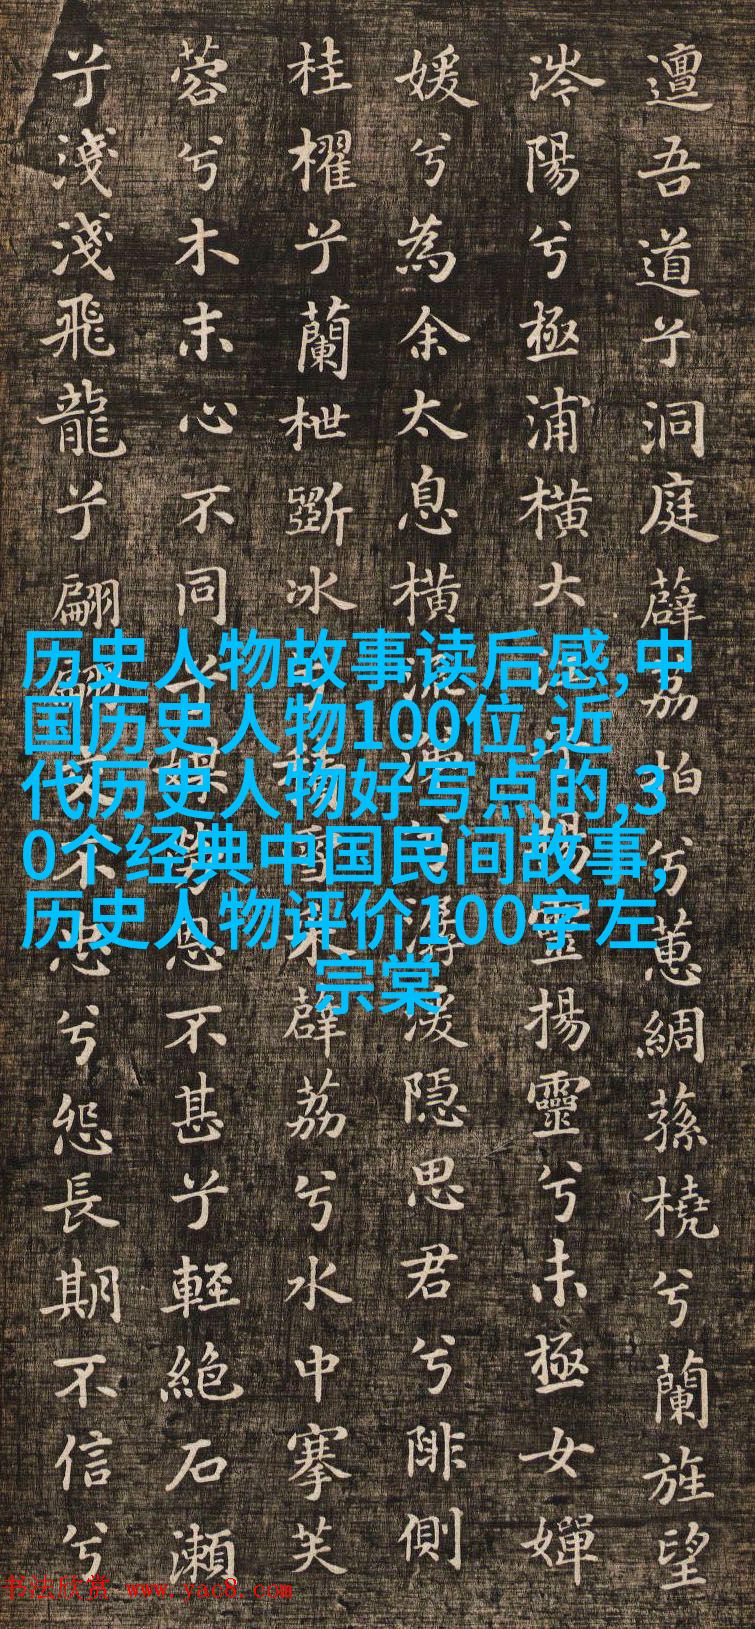 邅吾道兮洞庭薜荔柏兮蕙綢蓀橈兮蘭旌望
涔陽兮極浦橫大江兮揚靈揚靈兮未極女嬋
媛兮為余太息橫流涕兮潺湲隱思君兮陫側
桂櫂兮蘭枻斲冰兮積雪采薜荔兮水中搴芙
蓉兮木末心不同兮媒勞恩不甚兮輕絶石瀨
兮淺淺飛龍兮翩翩交不忠兮怨長期不信兮
历史人物故事读后感,中
国历史人物100位,近
代历史人物好写点的,3
0个经典中国民间故事,
历史人物评价100字左
宗棠
书法欣赏 www.yac8.com